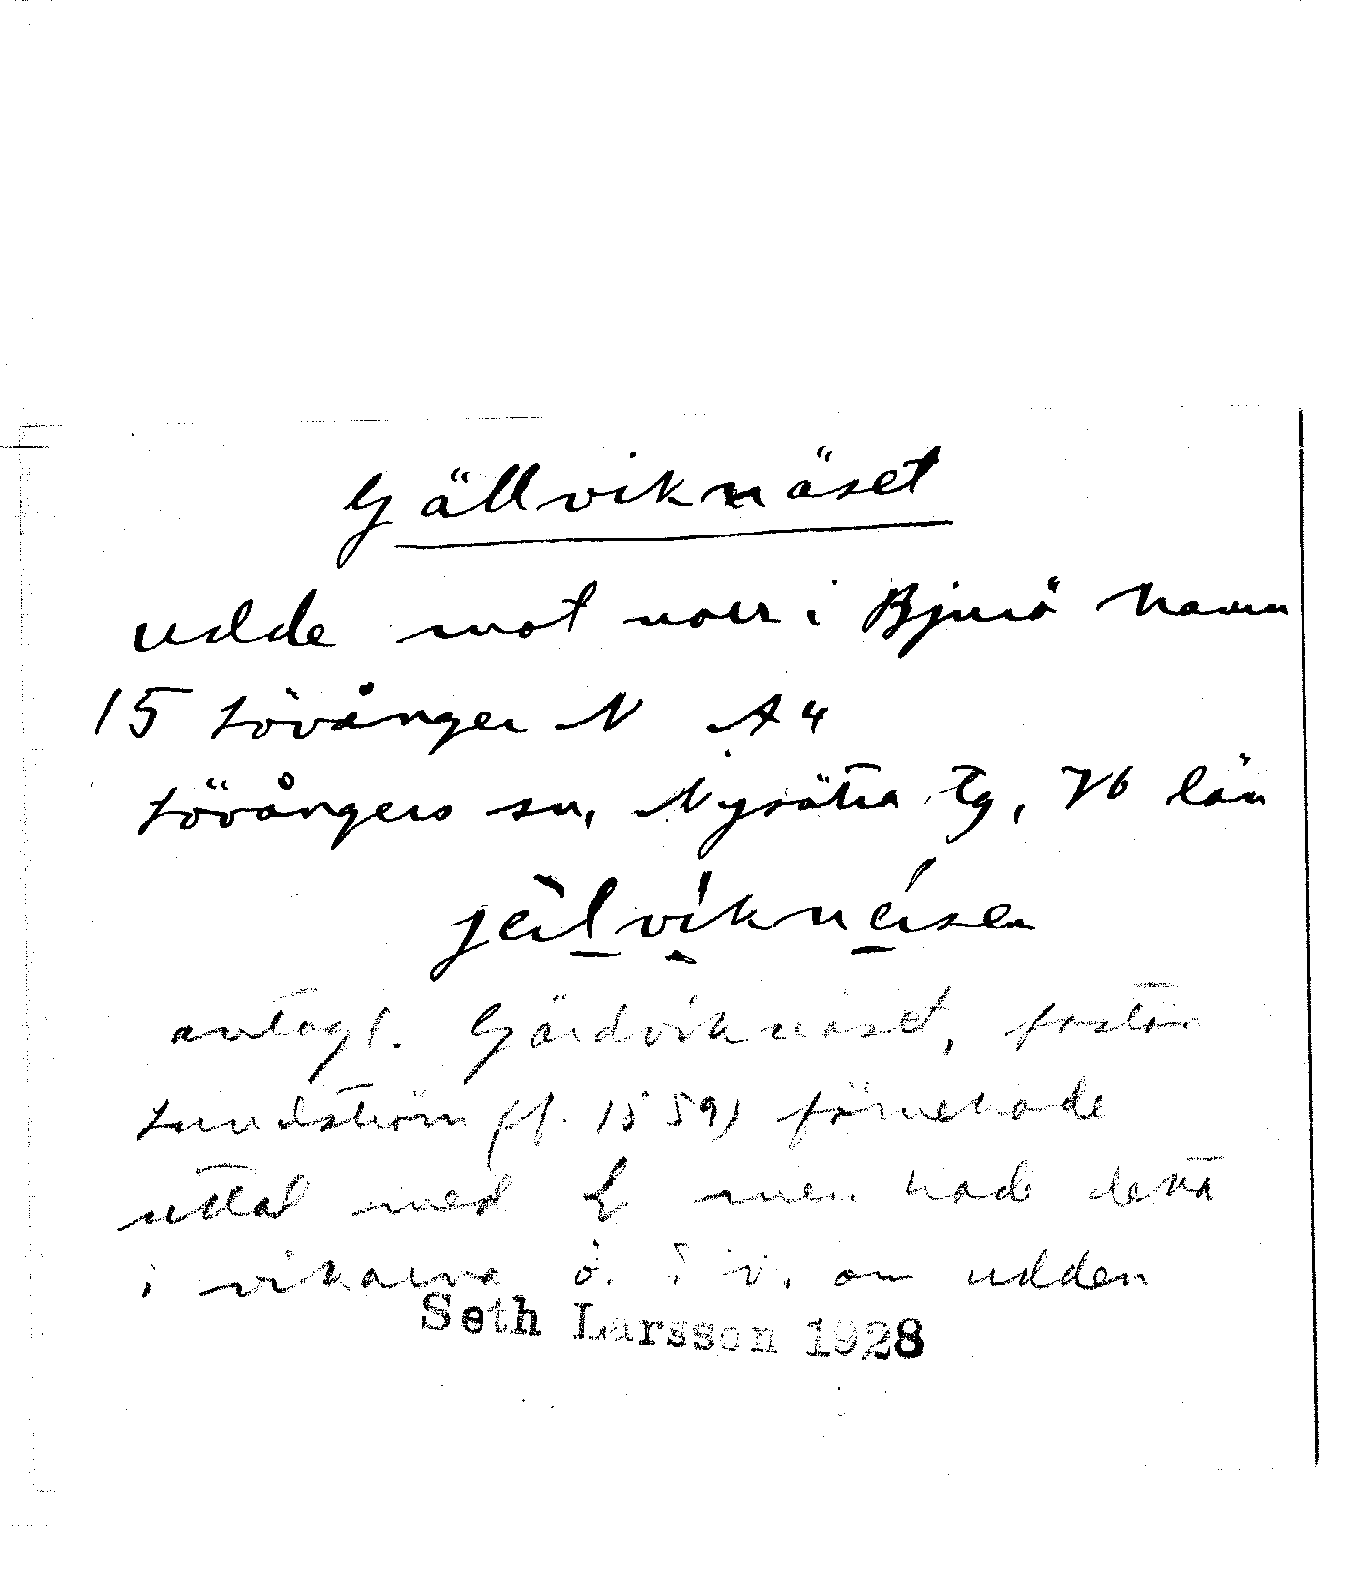 Gällviknäset
udde mot norr i Bjurö hamn
15 Lövånger N A4
Lövångers sn, Nysätra tg, Vb län
jeilvikneisen
antagl. Gärdviknäset, fastän
Lundström (f. 1859) förnekade
uttal med L men hade detta
i vikarna ö. o v. om udden
Seth Larsson 1928